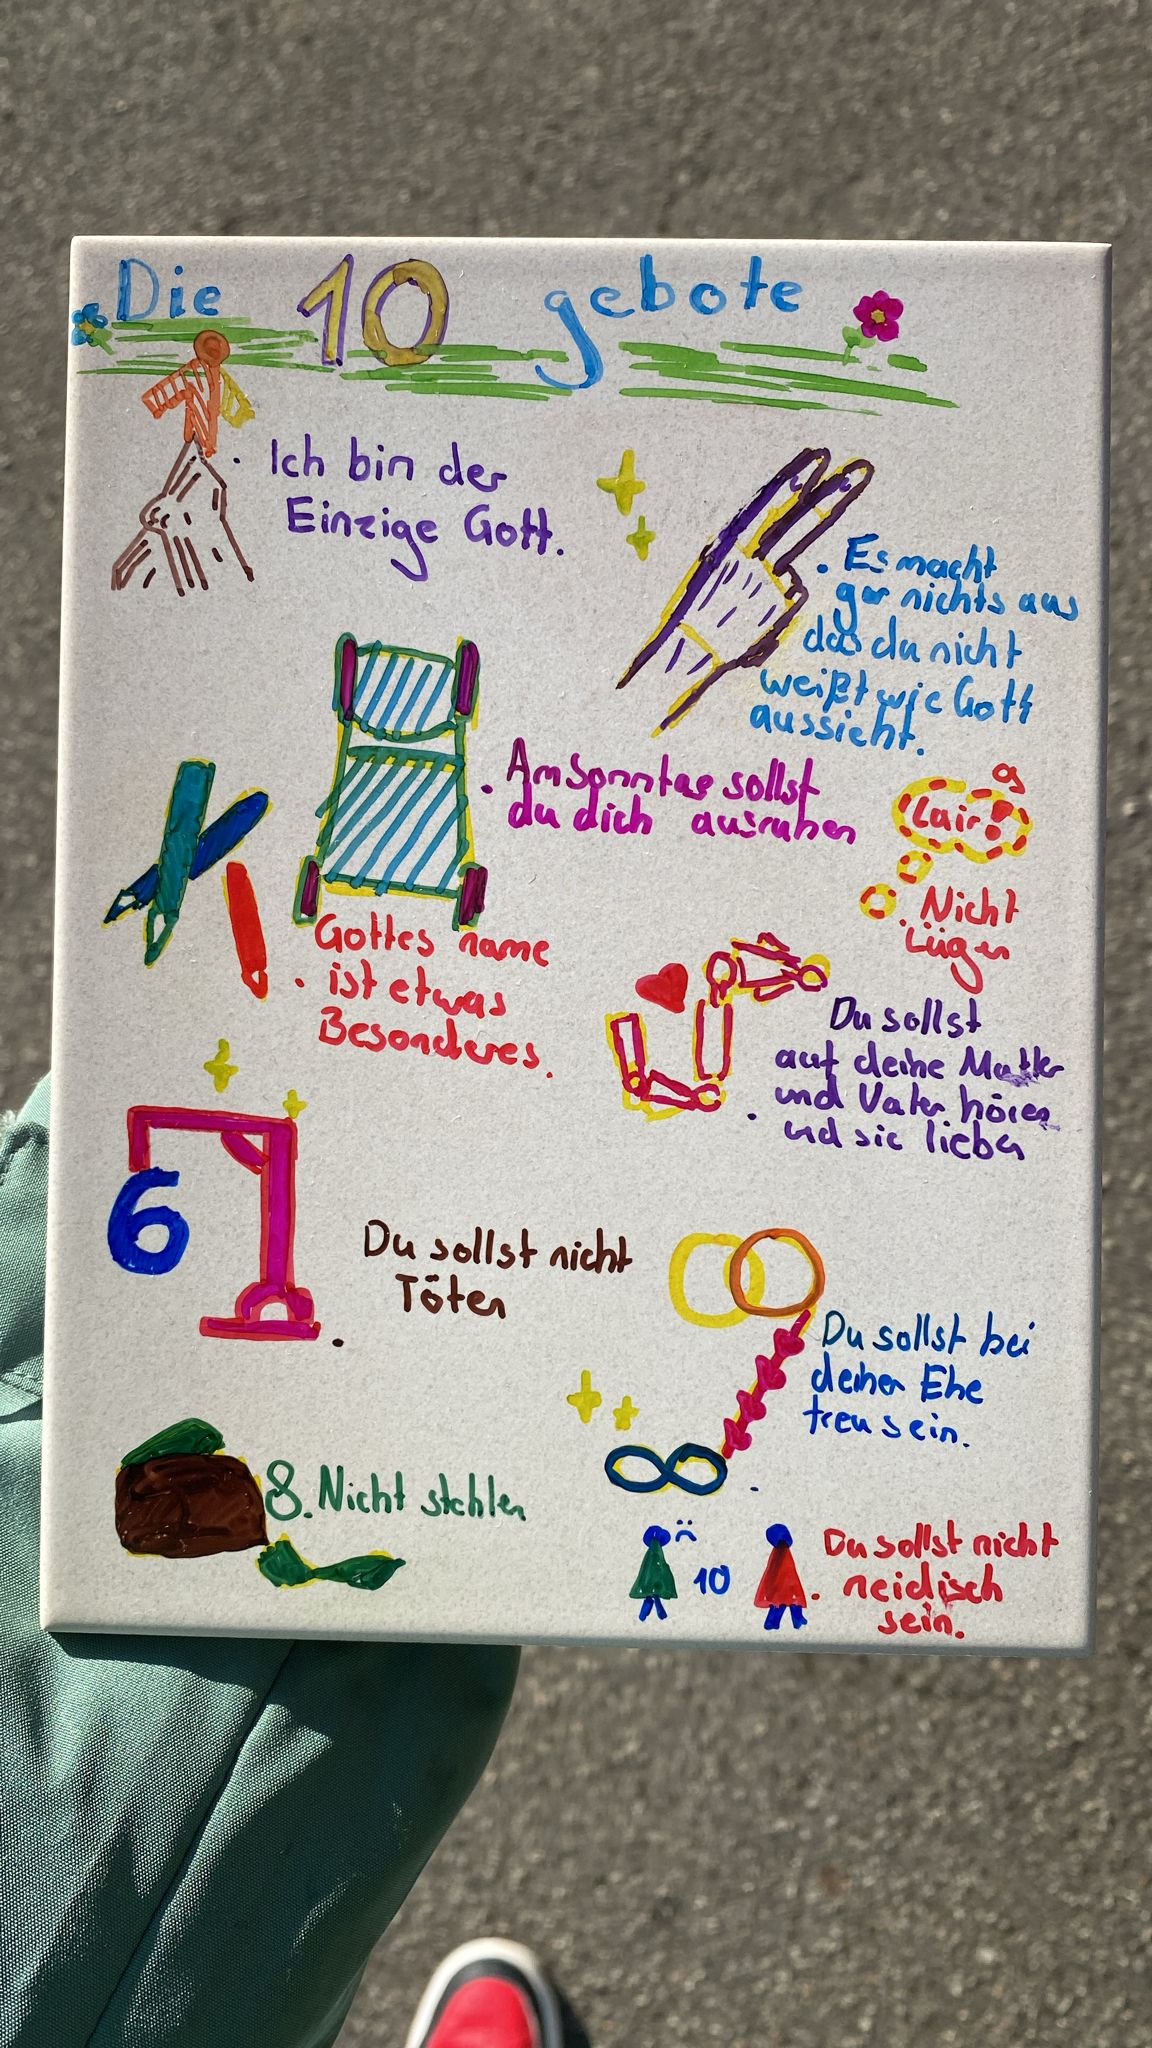 Die 10 gebote
. Ich bin der
Einzige Gott.
. Es macht
gar nichts aus
das du nicht
weißt wie Gott
aussieht.
. Am Sonntag sollst
du dich ausruhen
Gottes name
. ist etwas
Besonderes.
9
Lair!
. Nicht
Lügen
Du sollst
auf deine Mutter
und Vater hören
. und sie lieben
6
Du sollst nicht
Töten
.
Du sollst bei
deiner Ehe
treu sein.
.
8. Nicht stehlen
10
. Du sollst nicht
neidisch
sein.